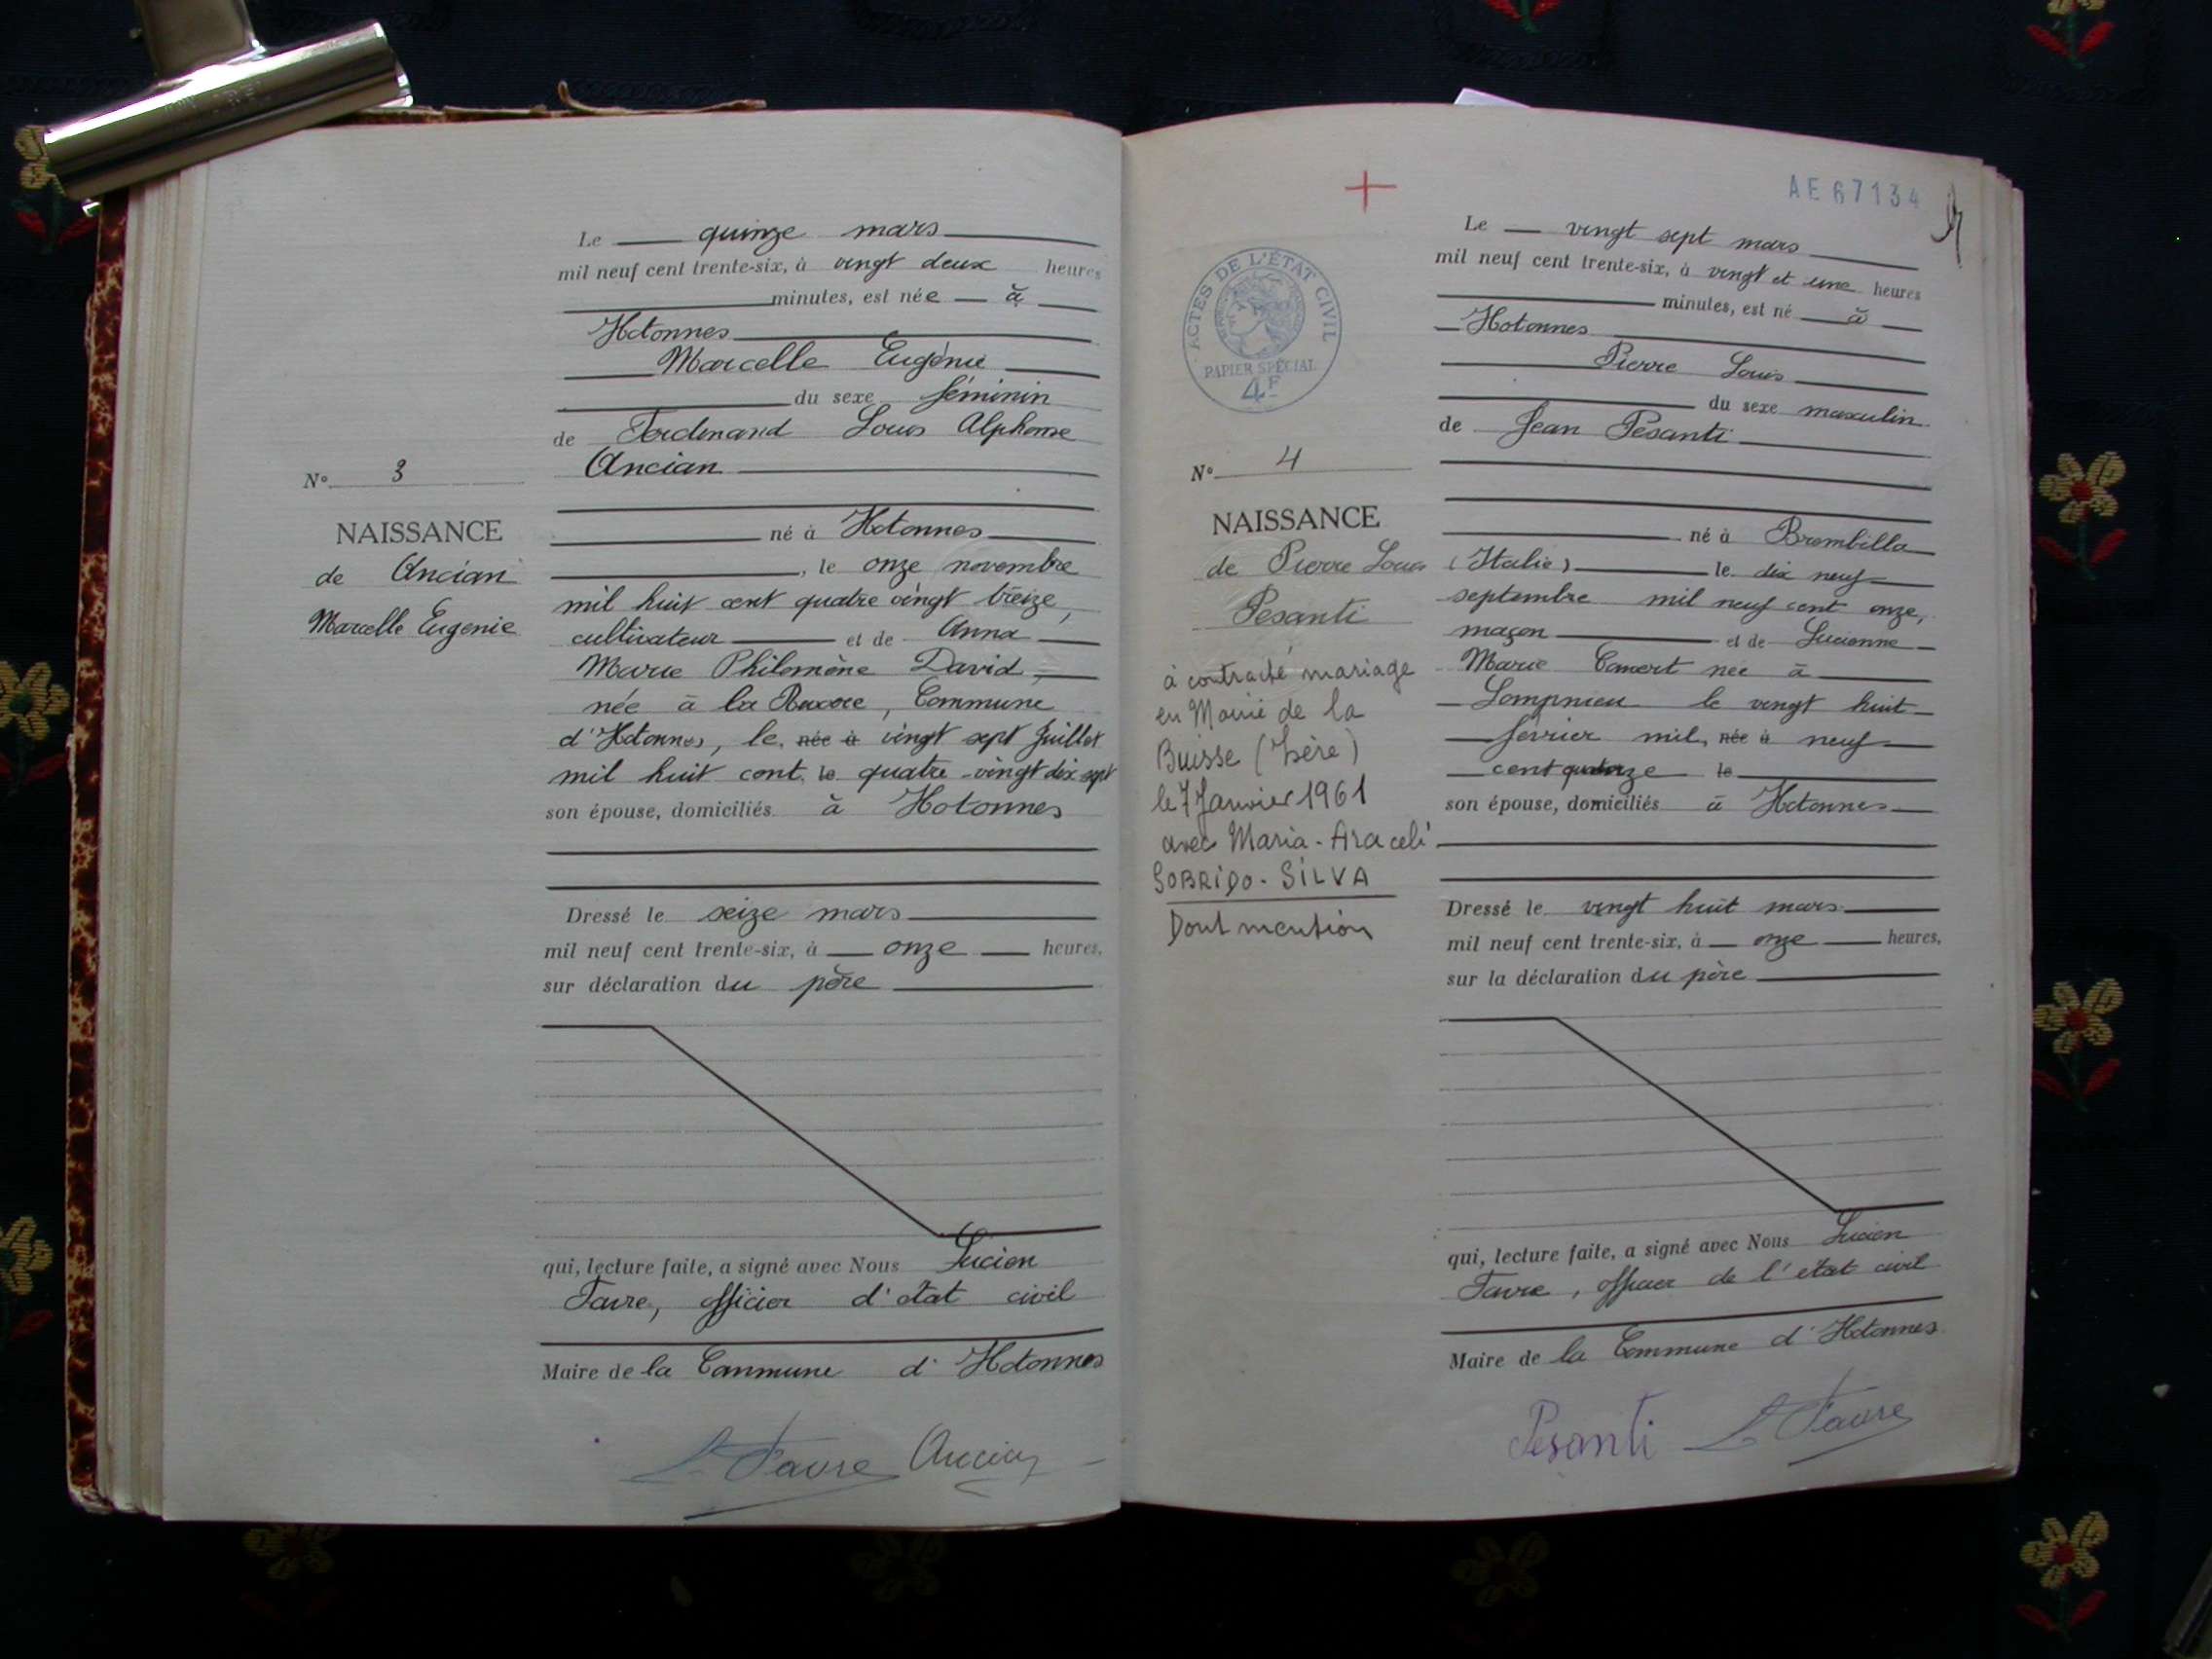 Le quinze mars
mil neuf cent trente-six, à vingt deux heures
minutes, est née à
Hotonnes
Marcelle Eugénie
du sexe féminin
de Ferdinand Louis Alphonse
Ancian
N° 3
NAISSANCE
de Ancian
Marcelle Eugenie
né à Hotonnes
, le onze novembre
mil huit cent quatre vingt treize,
cultivateur et de Anna
Marie Philomène David,
née à la Commune
d'Hotonnes, le née à vingt sept Juillet
mil huit cent le quatre-vingt dix sept
son épouse, domiciliés à Hotonnes
Dressé le seize mars
mil neuf cent trente-six, à onze heures,
sur déclaration du père
qui, lecture faite, a signé avec Nous Lucien
Favre, officier d'état civil
Maire de la Commune d'Hotonnes
L. Favre Ancian
AE67134
ACTES DE L'ÉTAT CIVIL
PAPIER SPÉCIAL
4F
Le vingt sept mars
mil neuf cent trente-six, à vingt et une heures
minutes, est né à
Hotonnes
Pierre Louis
du sexe masculin
de Jean Pesanti
N° 4
NAISSANCE
de Pierre Louis
Pesanti
à contracté mariage
en Mairie de la
Buisse (Isère)
le 7 Janvier 1961
avec Maria-Araceli
SOBRIDO-SILVA
Dont mention
né à Brembilla
(Italie) le dix neuf
septembre mil neuf cent onze,
maçon et de Lucienne
Marie née à
Lompnieu le vingt huit
février mil née à neuf
cent quatorze le
son épouse, domiciliés à Hotonnes
Dressé le vingt huit mars
mil neuf cent trente-six, à onze heures,
sur la déclaration du père
qui, lecture faite, a signé avec Nous Lucien
Favre, officier de l'état civil
Maire de la Commune d'Hotonnes
Pesanti L. Favre